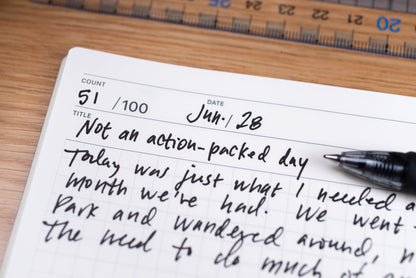 20
COUNT
51 /100
DATE
Jun. / 28
TITLE
Not an action-packed day
Today was just what I needed a
month we've had. We went
Park and wandered around,
the need to do much